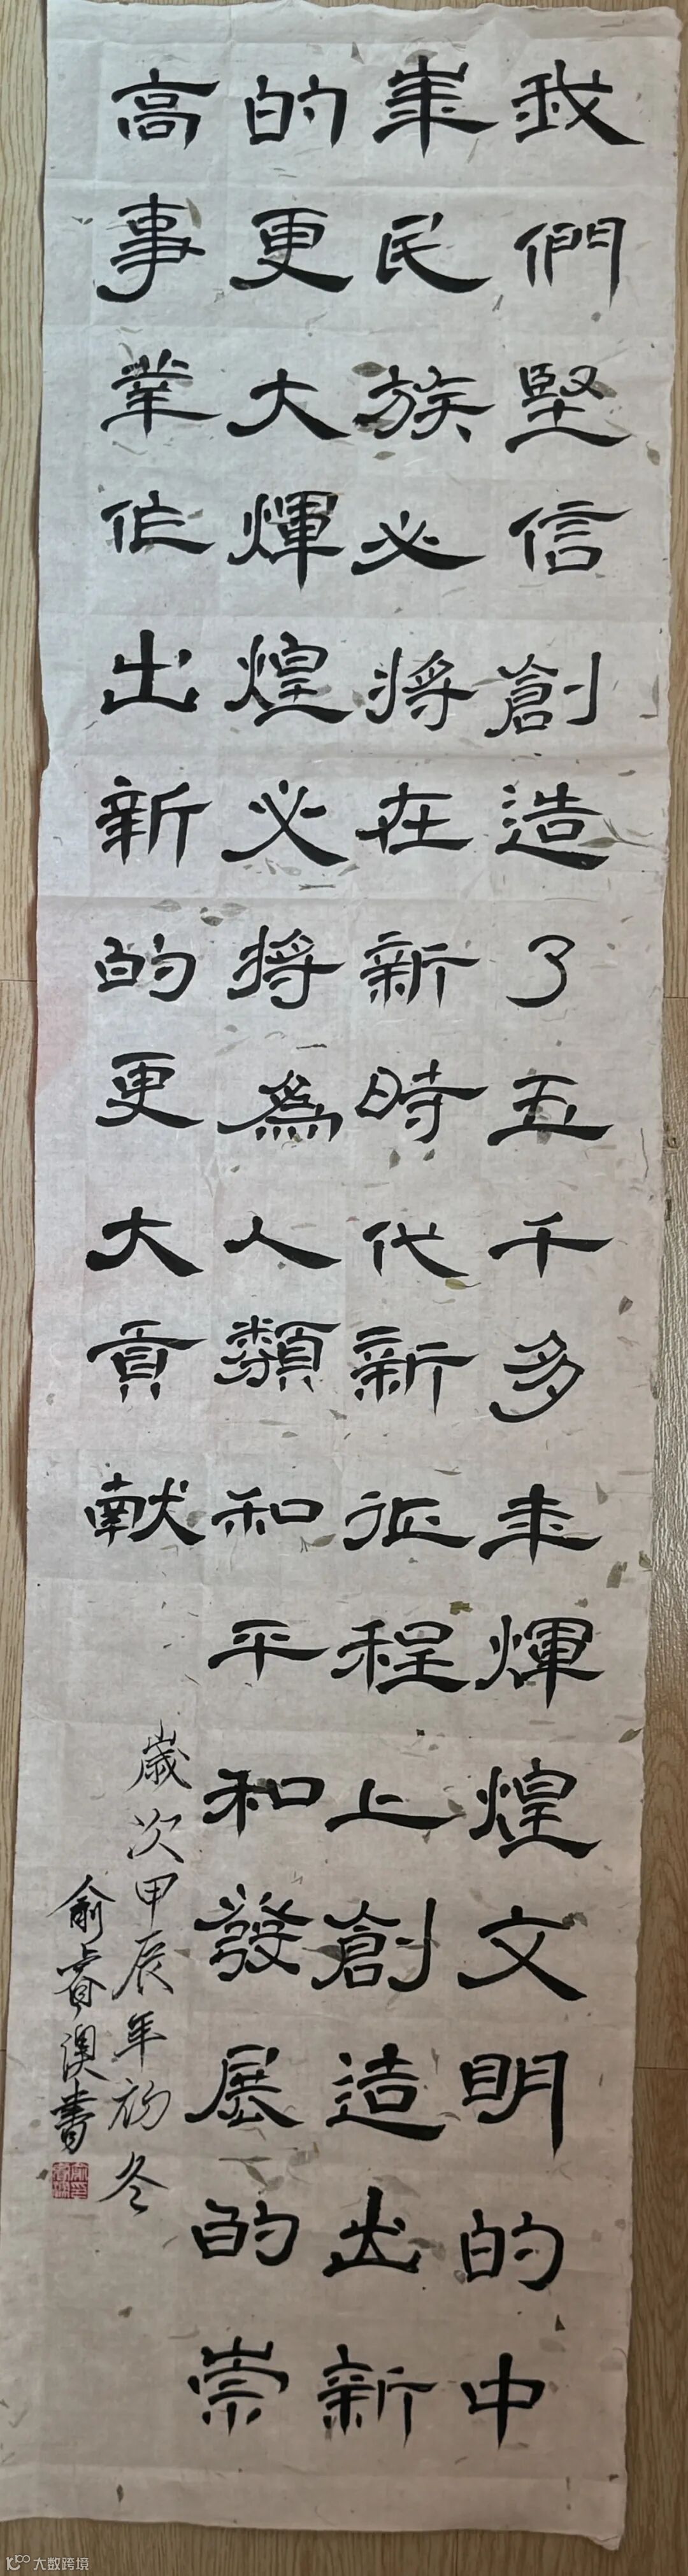 我們堅信創造了五千多年輝煌文明的中
華民族必將在新時代新征程上創造出新
的更大輝煌必將為人類和平和發展的崇
高事業作出新的更大貢献
歲次甲辰年初冬
俞睿澳書
大数跨境